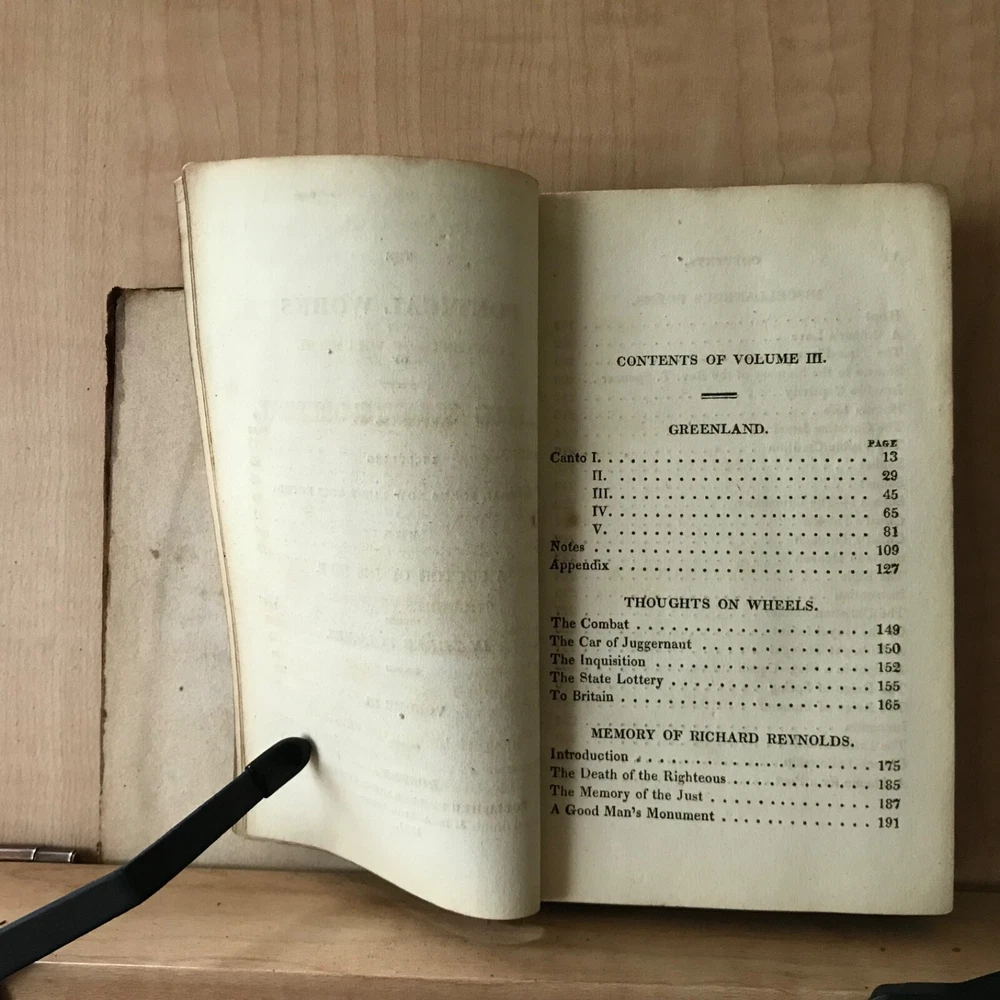 CONTENTS OF VOLUME III.
GREENLAND.
PAGE
Canto I. . . . . . . . . . . . . . . . . . . . . . 13
II. . . . . . . . . . . . . . . . . . . . . . 29
III. . . . . . . . . . . . . . . . . . . . . 45
IV. . . . . . . . . . . . . . . . . . . . . 65
V. . . . . . . . . . . . . . . . . . . . . 81
Notes . . . . . . . . . . . . . . . . . . . . . 109
Appendix . . . . . . . . . . . . . . . . . . . . 127
THOUGHTS ON WHEELS.
The Combat . . . . . . . . . . . . . . . . . . 149
The Car of Juggernaut . . . . . . . . . . . . . 150
The Inquisition . . . . . . . . . . . . . . . . 152
The State Lottery . . . . . . . . . . . . . . . 155
To Britain . . . . . . . . . . . . . . . . . . . 165
MEMORY OF RICHARD REYNOLDS.
Introduction . . . . . . . . . . . . . . . . . . 175
The Death of the Righteous . . . . . . . . . . . 185
The Memory of the Just . . . . . . . . . . . . . 187
A Good Man's Monument . . . . . . . . . . . . 191